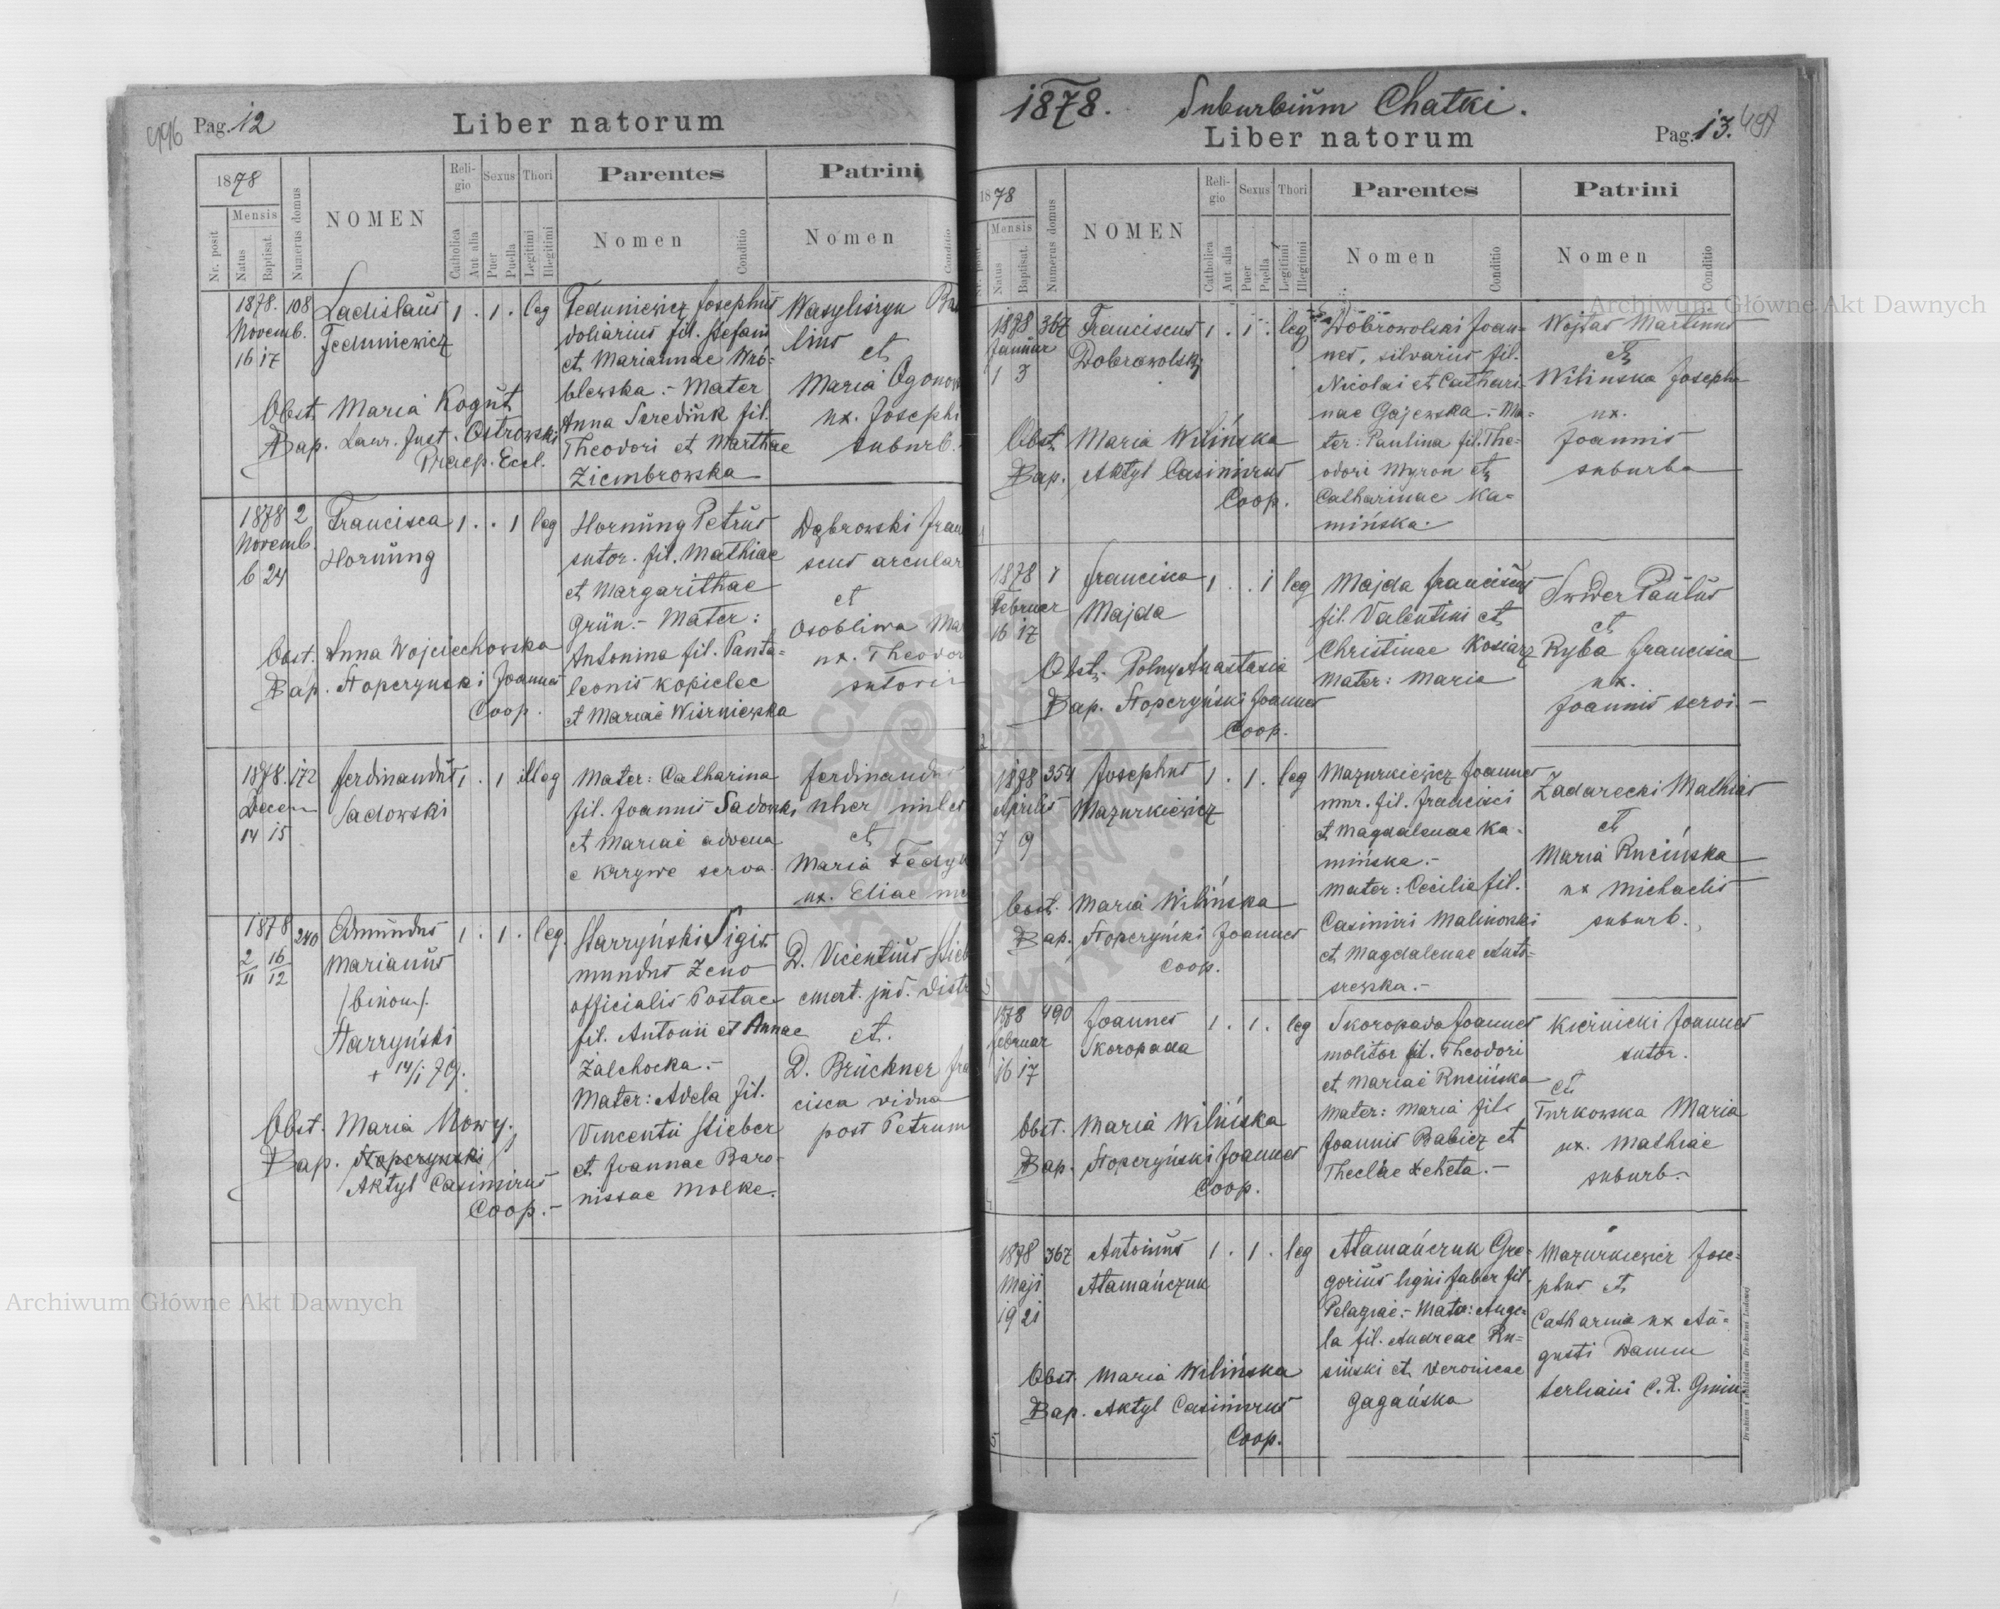 496 Pag. 12
Liber natorum
1878
Nr. posit
Mensis
Natus
Baptisat.
Numerus domus
NOMEN
Religio
Catholica
Aut alia
Sexus
Puer
Puella
Thori
Legitimi
Illegitimi
Parentes
Nomen
Conditio
Patrini
Nomen
Conditio
1878. 108 Ladislaus 1 . 1 . leg
Novemb. Feduniewicz
16 17
Obst. Maria Kogut
Bap. Laur. Just. Ostrowski
Praep. Eccl.
Feduniewicz Josephus
doliarius fil. Stefani
et Mariannae Wró-
blewska .- Mater
Anna Serediuk fil.
Theodori et Marthae
Ziembrowska
Wasyliszyn
lius
et
Maria Ogonow
ux. Josephi
suburb.
1878 2 Francisca 1 . . 1 leg
Novemb. Hornung
6 24
Obst. Anna Wojciechowska
Bap. Stopczynski Joannes
Coop.
Hornung Petrus
sutor. fil. Mathiae
et Margarithae
Grün .- Mater:
Antonina fil. Panta-
leonis Kopielec
et Mariae Wiśniewska
Dąbrowski Fran
scus arcular
et
Osobliwa Ma
ux. Theodor
sutoris
1878. 172 Ferdinandus 1 . 1 illeg
Decem Sadowski
14 15
Mater: Catharina
fil. Joannis Sadowski
et Mariae advena
e Krzywe serva.
Ferdinandus
miles
et
Maria Fedyk
ux. Eliae
1878 240 Edmundus 1 . 1 . leg.
2/11 16/12 Marianus
/binom/.
Starzyński
+ 14/1 79.
Obst. Maria Nowy.
Bap. Stopczynski
Aktyl Casimirus
Coop. -
Starzyński Sigis
mundus Zeno
officialis Postae
fil. Antonii et Annae
Załchocka .-
Mater: Adela fil.
Vincentii Stieber
et Joannae Baro-
nissae Molke.
D. Vicentius Stieb
emert. jud. distr
et.
D. Brückner Fra
cisca vidua
post Petrum
1878. Suburbium Chatki.
Liber natorum
Pag. 13. 497
1878
Nr. posit
Mensis
Natus
Baptisat.
Numerus domus
NOMEN
Religio
Catholica
Aut alia
Sexus
Puer
Puella
Thori
Legitimi
Illegitimi
Parentes
Nomen
Conditio
Patrini
Nomen
Conditio
1878 367 Franciscus 1 . 1 . leg
Januar Dobrowolski
1 3
Obst. Maria Wilińska
Bap. Aktyl Casimirus
Coop.
Dobrowolski Joan-
nes, silvarius fil.
Nicolai et Cathari-
nae Gajewska .- Ma-
ter: Paulina fil. The-
odori Myron et
Catharinae Ka-
mińska.
Wojtas Martinus
et
Wilinska Josepha
ux.
Joannis
suburba
1
1878 Francisca 1 . . 1 leg
Februar Majda
16 17
Obst. Polny Anastasia
Bap. Stopczyński Joannes
Coop.
Majda Franciscus
fil. Valentini et
Christinae Kosiarz
Mater: Maria
Swider Paulus
et
Ryba Francisca
ux.
Joannis servi. -
2
1878 354 Josephus 1 . 1 . leg
Aprilis Mazurkiewicz
7 9
Obst. Maria Wilińska
Bap. Stopczyński Joannes
Coop.
Mazurkiewicz Joannes
mur. fil. Francisci
et Magdalenae Ka-
mińska .-
Mater: Cecilia fil.
Casimiri Malinowski
et Magdalenae Anto-
szewska .-
Zadarecki Mathias
et
Maria Rucińska
ux Michaelis
suburb.
3
1878 490 Joannes 1 . 1 . leg
Februar Skoropada
16 17
Obst. Maria Wilińska
Bap. Stopczyński Joannes
Coop.
Skoropada Joannes
molitor fil. Theodori
et Mariae Rucińska
Mater: Maria fil.
Joannis Babicz et
Theclae .-
Kiernicki Joannes
sutor.
et
Turkowska Maria
ux. Mathiae
suburb.-
4
1878 367 Antonius 1 . 1 . leg
Maji Atamańczuk
19 21
Obst. Maria Wilińska
Bap. Aktyl Casimirus
Coop.
Atamańczuk Gre-
gorius ligni faber fil.
Pelagiae .- Mater: Ange-
la fil. Andreae Ru-
siński et Veronicae
Gagańska
Mazurkiewicz Jose-
phus et
Catharina ux Au-
gusti Damm
5
Archiwum Główne Akt Dawnych
Archiwum Główne Akt Dawnych